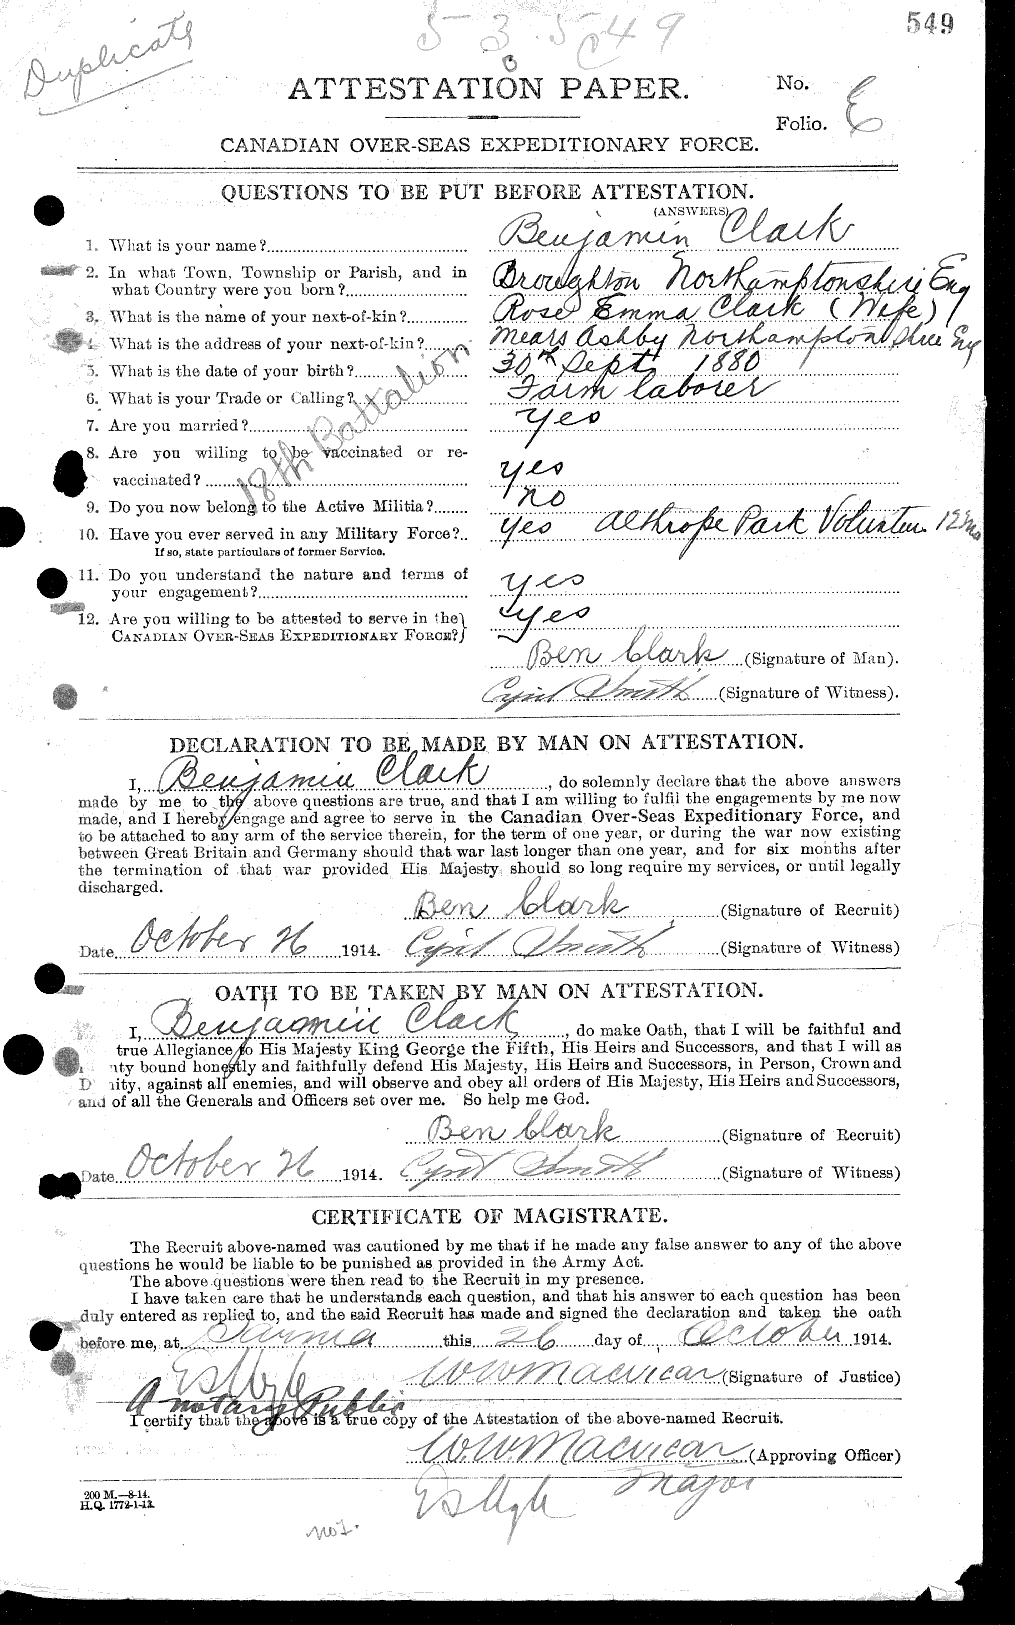 Duplicate
53549
549
ATTESTATION PAPER.
No.
Folio. E
CANADIAN OVER-SEAS EXPEDITIONARY FORCE.
QUESTIONS TO BE PUT BEFORE ATTESTATION.
(ANSWERS)
1. What is your name? Benjamin Clark
2. In what Town, Township or Parish, and in
what Country were you born? Broughton Northamptonshire Eng
3. What is the name of your next-of-kin? Rose Emma Clark (Wife)
4. What is the address of your next-of-kin? Mears Ashby Northampton Shire Eng
5. What is the date of your birth? 30th Sept 1880
6. What is your Trade or Calling? Farm laborer
7. Are you married? yes
18th Battalion
8. Are you willing to be vaccinated or re-
vaccinated? yes
9. Do you now belong to the Active Militia? no
10. Have you ever served in any Military Force? yes Althrope Park Volunteer 12
If so, state particulars of former Service.
11. Do you understand the nature and terms of
your engagement? yes
12. Are you willing to be attested to serve in the
CANADIAN OVER-SEAS EXPEDITIONARY FORCE? yes
Ben Clark (Signature of Man).
Cyril Smith (Signature of Witness).
DECLARATION TO BE MADE BY MAN ON ATTESTATION.
I, Benjamin Clark, do solemnly declare that the above answers
made by me to the above questions are true, and that I am willing to fulfil the engagements by me now
made, and I hereby engage and agree to serve in the Canadian Over-Seas Expeditionary Force, and
to be attached to any arm of the service therein, for the term of one year, or during the war now existing
between Great Britain and Germany should that war last longer than one year, and for six months after
the termination of that war provided His Majesty should so long require my services, or until legally
discharged.
Ben Clark (Signature of Recruit)
Date October 26 1914. Cyril Smith (Signature of Witness)
OATH TO BE TAKEN BY MAN ON ATTESTATION.
I, Benjamin Clark, do make Oath, that I will be faithful and
true Allegiance to His Majesty King George the Fifth, His Heirs and Successors, and that I will as
ty bound honestly and faithfully defend His Majesty, His Heirs and Successors, in Person, Crown and
D ity, against all enemies, and will observe and obey all orders of His Majesty, His Heirs and Successors,
and of all the Generals and Officers set over me. So help me God.
Ben Clark (Signature of Recruit)
Date October 26 1914. Cyril Smith (Signature of Witness)
CERTIFICATE OF MAGISTRATE.
The Recruit above-named was cautioned by me that if he made any false answer to any of the above
questions he would be liable to be punished as provided in the Army Act.
The above questions were then read to the Recruit in my presence.
I have taken care that he understands each question, and that his answer to each question has been
duly entered as replied to, and the said Recruit has made and signed the declaration and taken the oath
before me, at Sarnia this 26 day of October 1914.
W W Macvicar (Signature of Justice)
A notary Public
I certify that the above is a true copy of the Attestation of the above-named Recruit.
W. W. Macvicar (Approving Officer)
Major
200 M.—8-14.
H.Q. 1772-1-13.